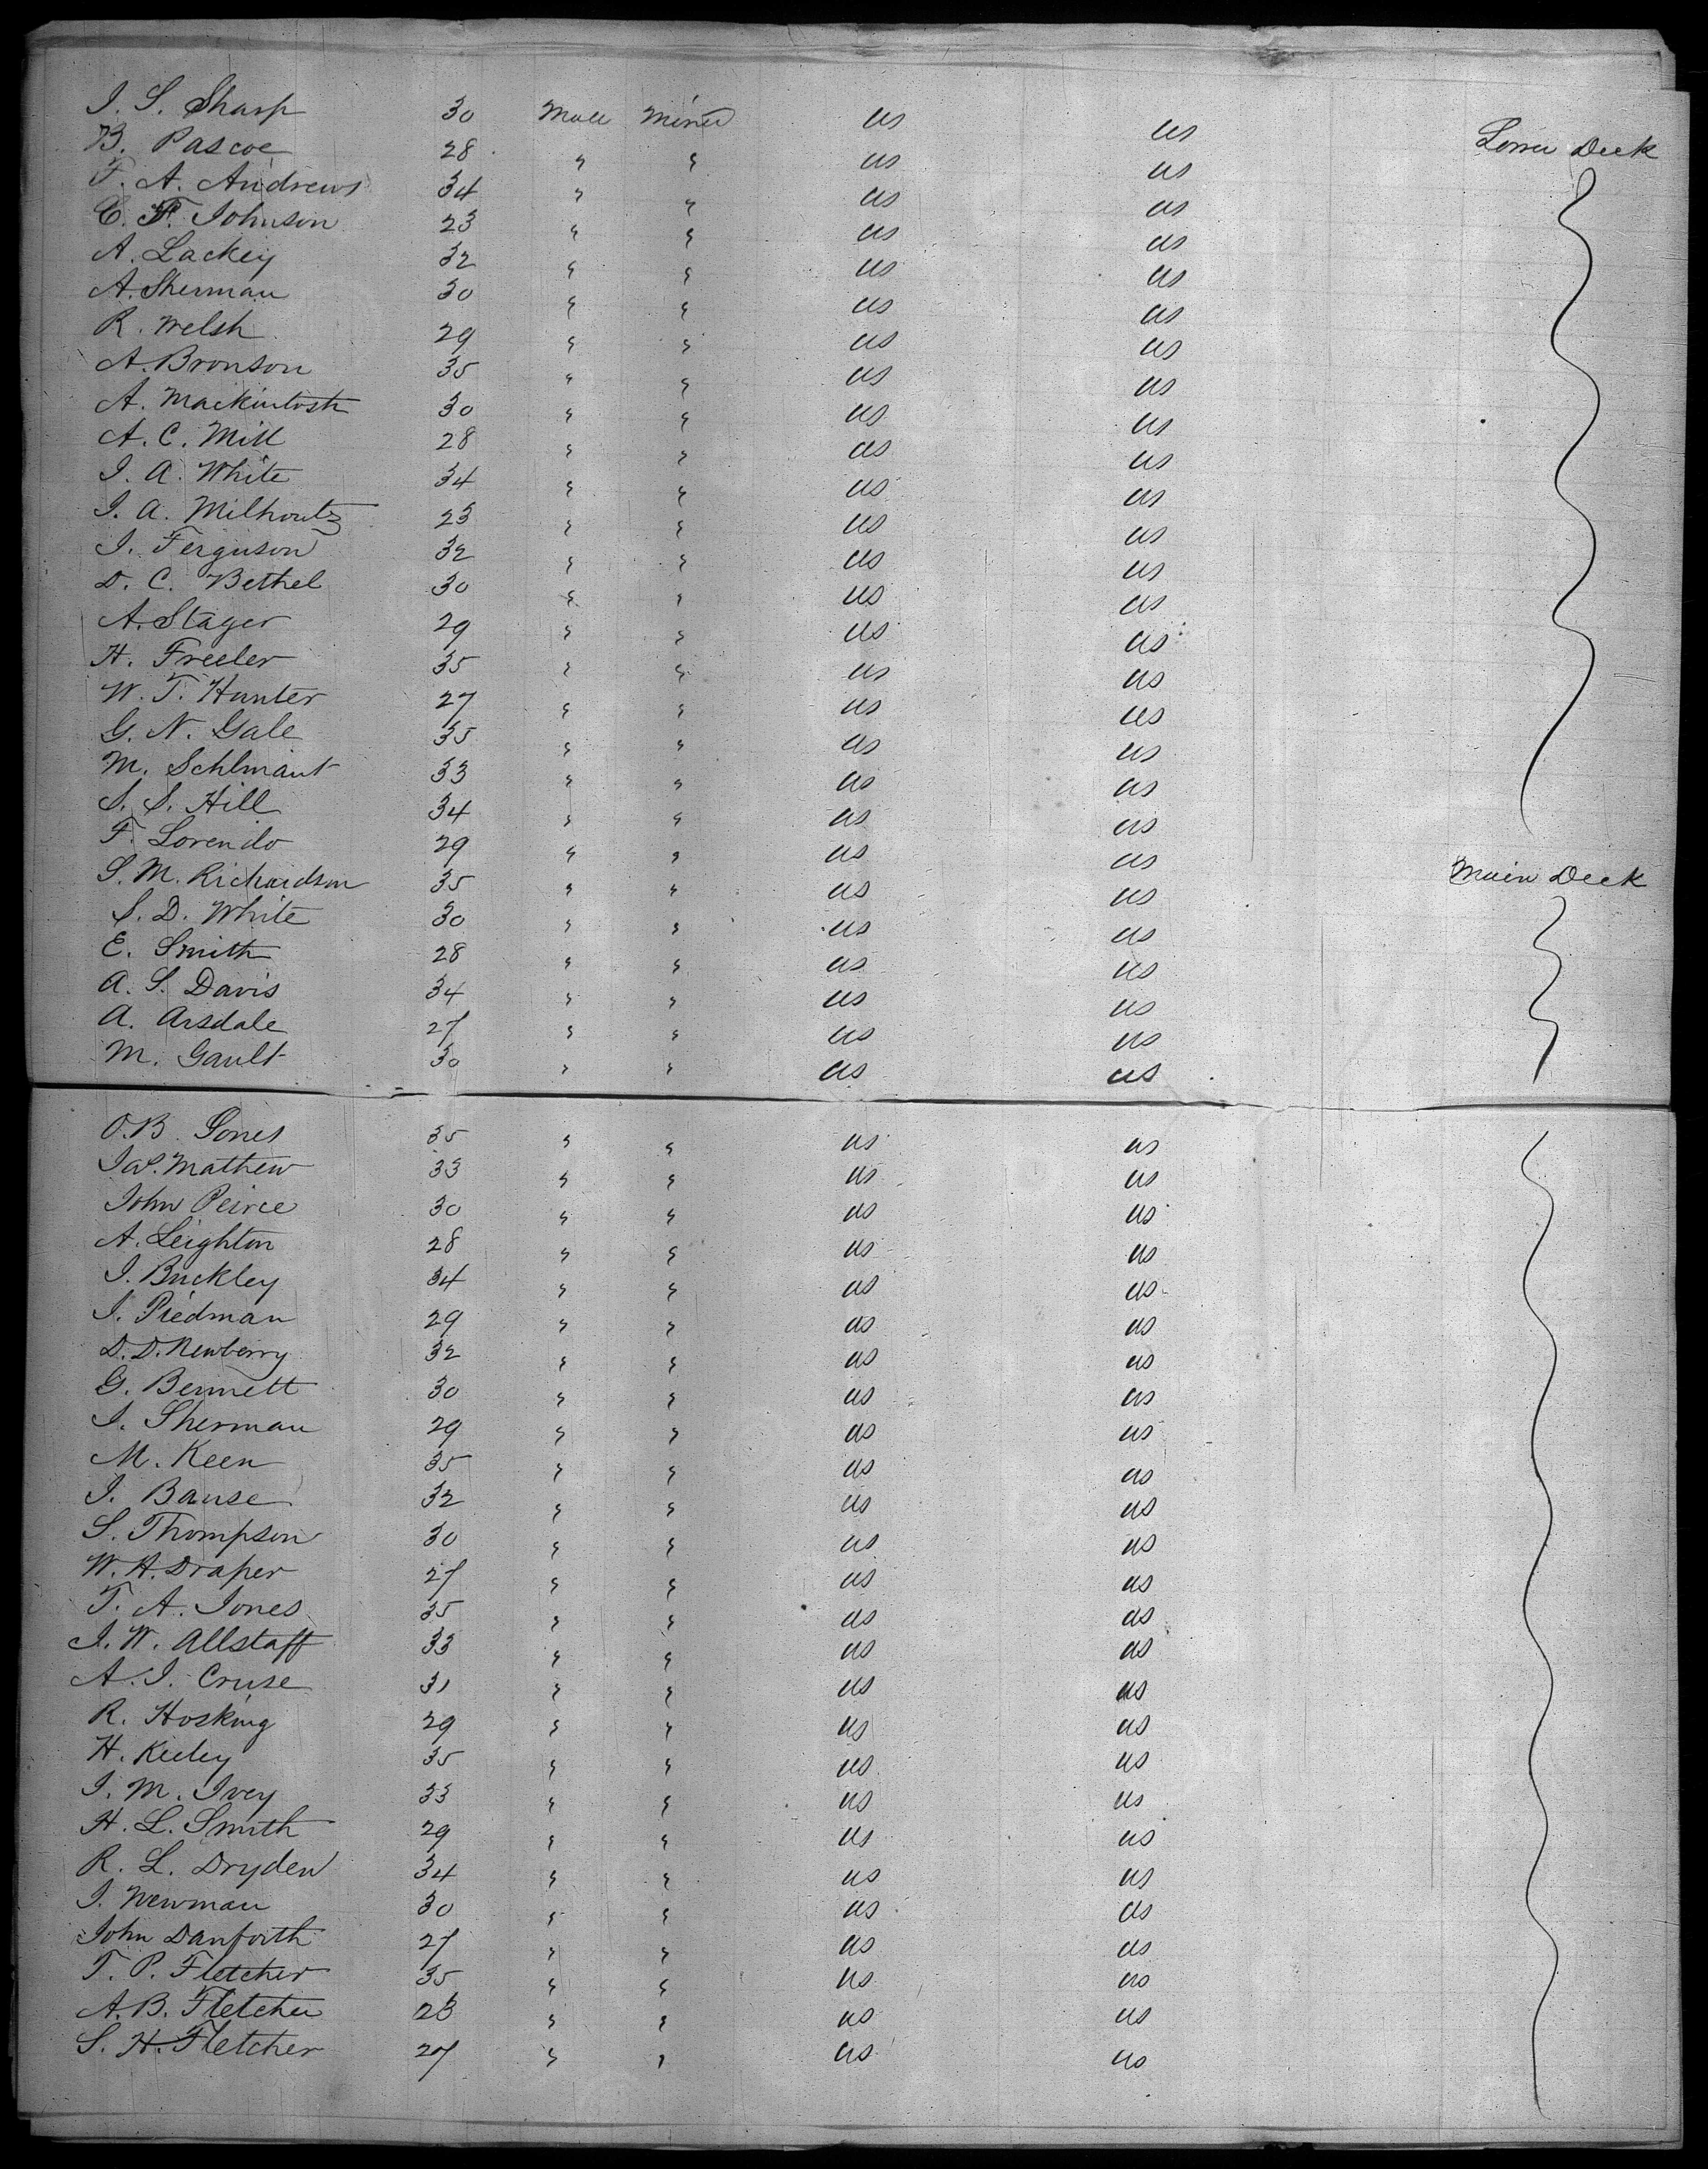 J. S. Sharp 30 Male Miner US US Lower Deck
B. Pascoe 28 " " US US
F. A. Andrews 34 " " US US
C. F. Johnson 23 " " US US
A. Lackey 32 " " US US
A. Sherman 30 " " US US
R. Welsh 29 " " US US
A. Bronson 35 " " US US
A. Mackintosh 30 " " US US
A. C. Mill 28 " " US US
J. A. White 34 " " US US
J. A. Milhoutz 23 " " US US
J. Ferguson 32 " " US US
D. C. Bethel 30 " " US US
A. Stager 29 " " US US
H. Freeler 35 " " US US
W. T. Hunter 27 " " US US
G. N. Gale 35 " " US US
M. Schlmant 33 " " US US
S. S. Hill 34 " " US US
F. Lorendo 29 " " US US
S. M. Richardson 35 " " US US Main Deck
S. D. White 30 " " US US
E. Smith 28 " " US US
A. S. Davis 34 " " US US
A. Arsdale 27 " " US US
M. Gault 30 " " US US
O. B. Jones 35 " " US US
Jas. Mathew 33 " " US US
John Peirce 30 " " US US
A. Leighton 28 " " US US
J. Buckley 34 " " US US
J. Piedman 29 " " US US
D. D. Newberry 32 " " US US
G. Bennett 30 " " US US
J. Sherman 29 " " US US
M. Keen 35 " " US US
J. Bause 32 " " US US
S. Thompson 30 " " US US
W. H. Draper 27 " " US US
T. A. Jones 35 " " US US
J. W. Allstaff 33 " " US US
A. J. Cruse 31 " " US US
R. Hosking 29 " " US US
H. Kieley 35 " " US US
J. M. Ivey 33 " " US US
H. L. Smith 29 " " US US
R. L. Dryden 34 " " US US
J. Newman 30 " " US US
John Danforth 27 " " US US
T. P. Fletcher 35 " " US US
A. B. Fletcher 23 " " US US
S. H. Fletcher 27 " " US US